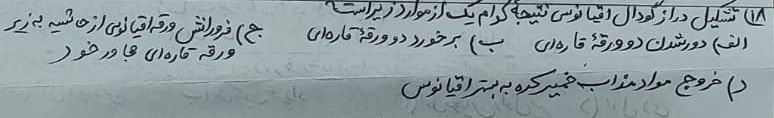 ۱۸) تشکیل دراز گودال اقیانوسی نتیجهٔ کدام یک از موارد زیر است؟
الف) دور شدن دو ورقهٔ قاره‌ای ب) برخورد دو ورقهٔ قاره‌ای ج) فرورانش ورقه اقیانوسی از حاشیه به زیر
ورقه قاره‌ای مجاور خود
د) خروج مواد مذاب خمیرکره به بستر اقیانوس